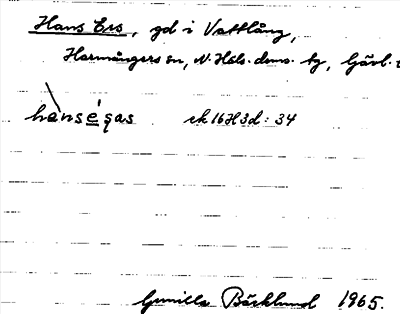 Hans Ers, gd i Vattlång,
Harmångers sn, N. Häls. doms. tg, Gävl.
hànségas ek 16H3d: 34
Gunilla Bäcklund 1965.